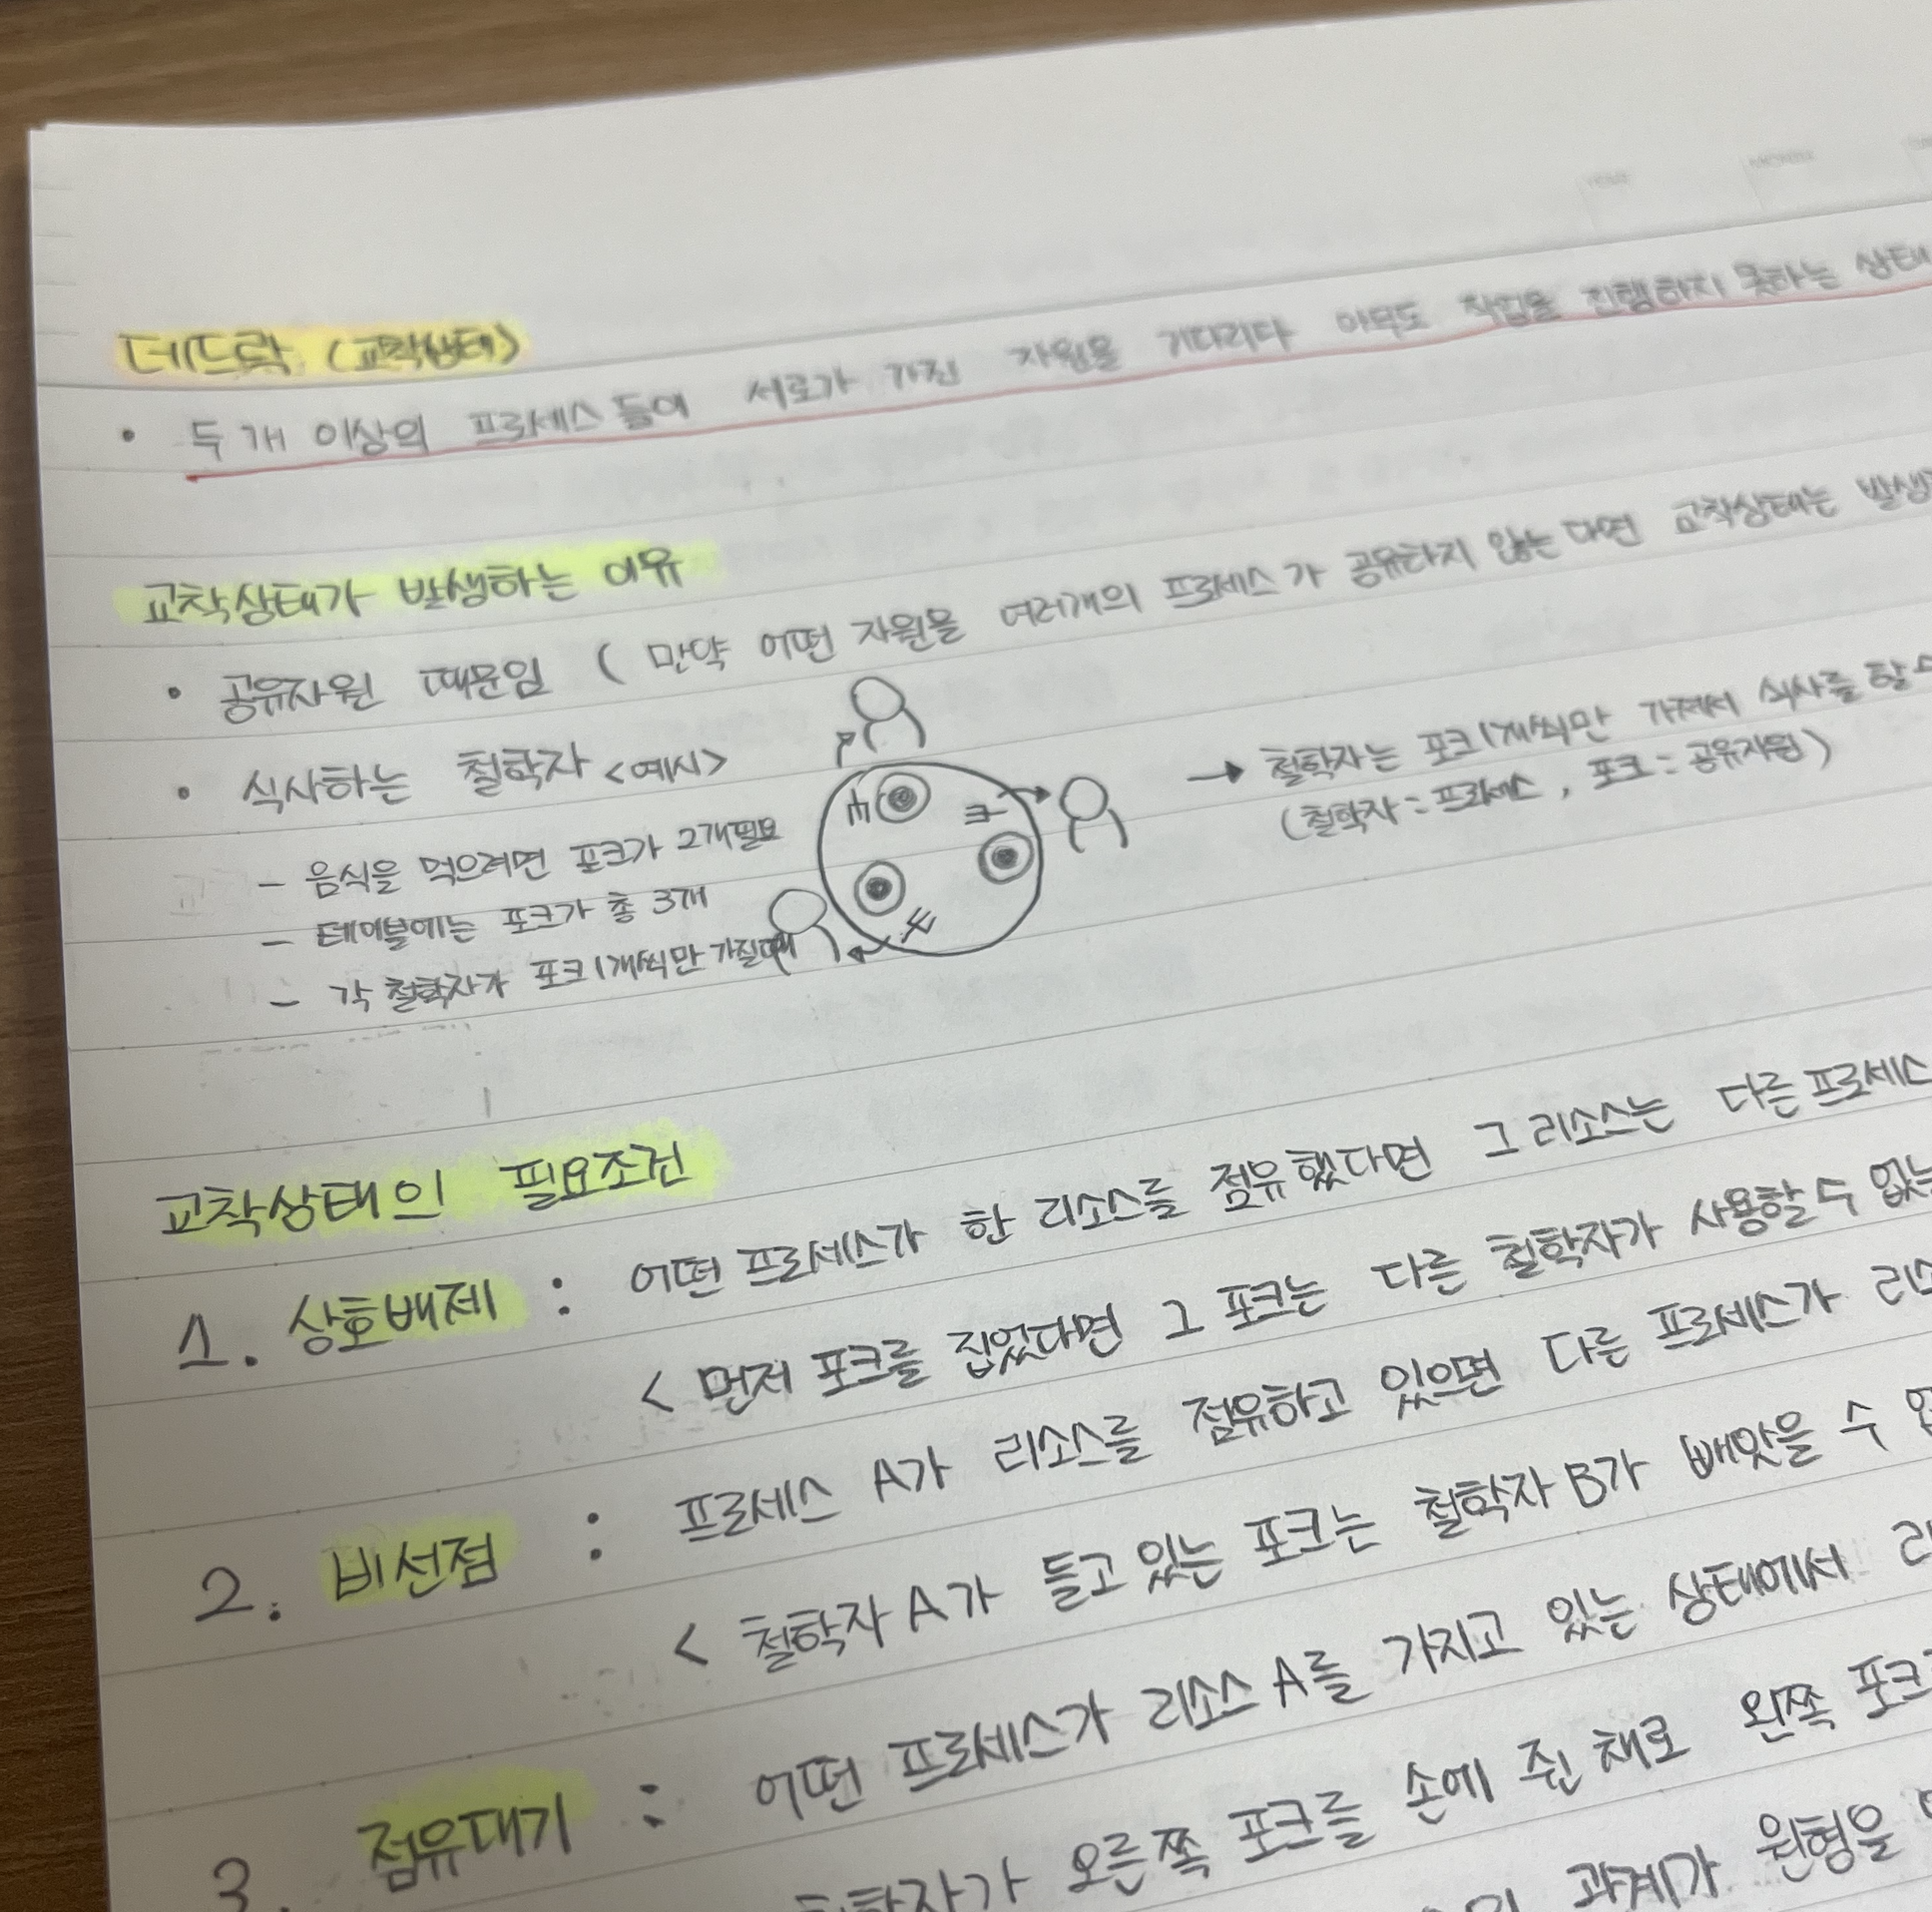 데드락 (교착상태)
• 두 개 이상의 프로세스들이 서로가 가진 자원을 기다리다 아무도 작업을 진행하지 못하는 상태
교착상태가 발생하는 이유
• 공유자원 때문임 ( 만약 어떤 자원을 여러개의 프로세스가 공유하지 않는다면 교착상태는 발생
• 식사하는 철학자 <예시>
→ 철학자는 포크 1개씩만 가져서 식사를 할 수
(철학자 = 프로세스, 포크 = 공유자원)
- 음식을 먹으려면 포크가 2개필요
- 테이블에는 포크가 총 3개
- 각 철학자가 포크 1개씩만 가질때
교착상태의 필요조건
1. 상호배제 : 어떤 프로세스가 한 리소스를 점유했다면 그 리소스는 다른 프로세스
< 먼저 포크를 집었다면 그 포크는 다른 철학자가 사용할 수 없는
2. 비선점 : 프로세스 A가 리소스를 점유하고 있으면 다른 프로세스가
< 철학자 A가 들고 있는 포크는 철학자 B가 빼앗을 수
3. 점유대기 : 어떤 프로세스가 리소스 A를 가지고 있는 상태에서
철학자가 오른쪽 포크를 손에 쥔 채로 왼쪽 포크
관계가 원형을